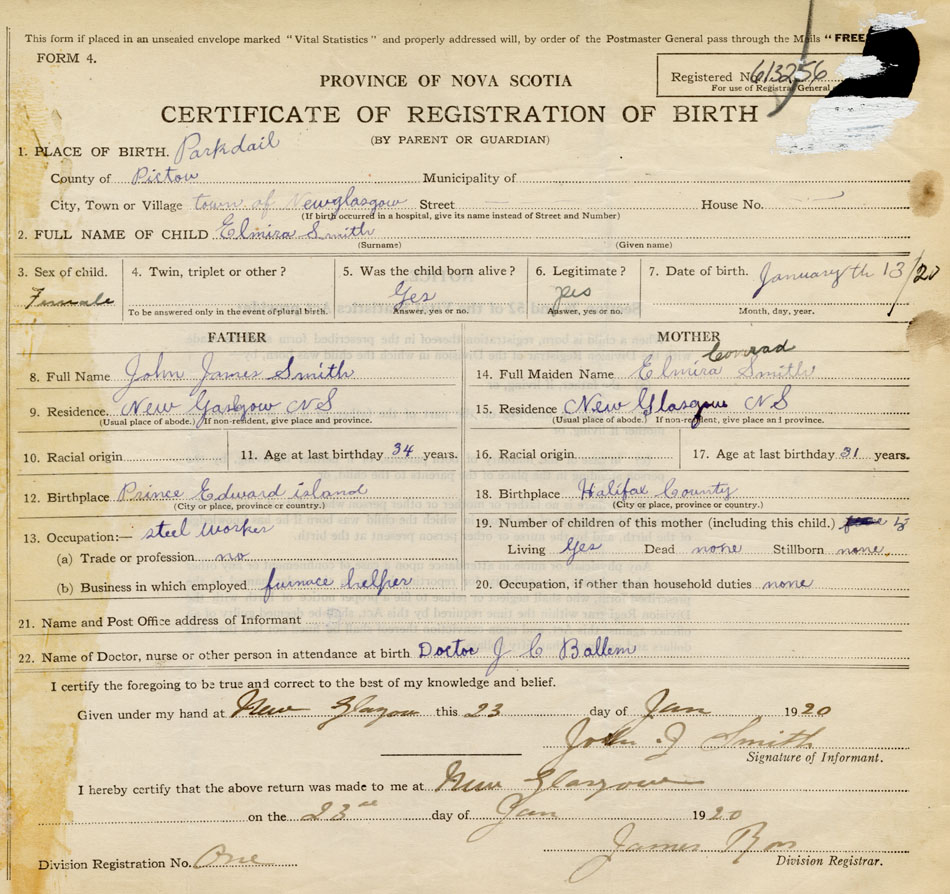 This form if placed in an unsealed envelope marked "Vital Statistics" and properly addressed will, by order of the Postmaster General pass through the Mails "FREE
FORM 4.
Registered No. 613256
For use of Registrar General
PROVINCE OF NOVA SCOTIA
CERTIFICATE OF REGISTRATION OF BIRTH
(BY PARENT OR GUARDIAN)
1. PLACE OF BIRTH. Parkdail
County of Pictou Municipality of
City, Town or Village town of Newglasgow Street House No.
(If birth occurred in a hospital, give its name instead of Street and Number)
2. FULL NAME OF CHILD Elmira Smith
(Surname) (Given name)
3. Sex of child. 4. Twin, triplet or other? 5. Was the child born alive? 6. Legitimate? 7. Date of birth. January th 13/20
Female Yes yes
To be answered only in the event of plural birth. Answer, yes or no. Answer, yes or no. Month, day, year.
FATHER MOTHER
Conrad
8. Full Name John James Smith 14. Full Maiden Name Elmira Smith
9. Residence. New Gasgow NS 15. Residence New Glasgow NS
(Usual place of abode.) If non-resident, give place and province. (Usual place of abode.) If non-resident, give place and province.
10. Racial origin 11. Age at last birthday 34 years. 16. Racial origin 17. Age at last birthday 31 years.
12. Birthplace Prince Edward island 18. Birthplace Halifax County
(City or place, province or country.) (City or place, province or country.)
13. Occupation:— steel worker 19. Number of children of this mother (including this child.)
(a) Trade or profession no Living Yes Dead none Stillborn none
(b) Business in which employed furnace helper 20. Occupation, if other than household duties none
21. Name and Post Office address of Informant
22. Name of Doctor, nurse or other person in attendance at birth Doctor J C Ballem
I certify the foregoing to be true and correct to the best of my knowledge and belief.
Given under my hand at New Glagow this 23 day of Jan 1920
John J Smith
Signature of Informant.
I hereby certify that the above return was made to me at New Glasgow
on the 23rd day of Jan 1920
James
Division Registration No. One Division Registrar.